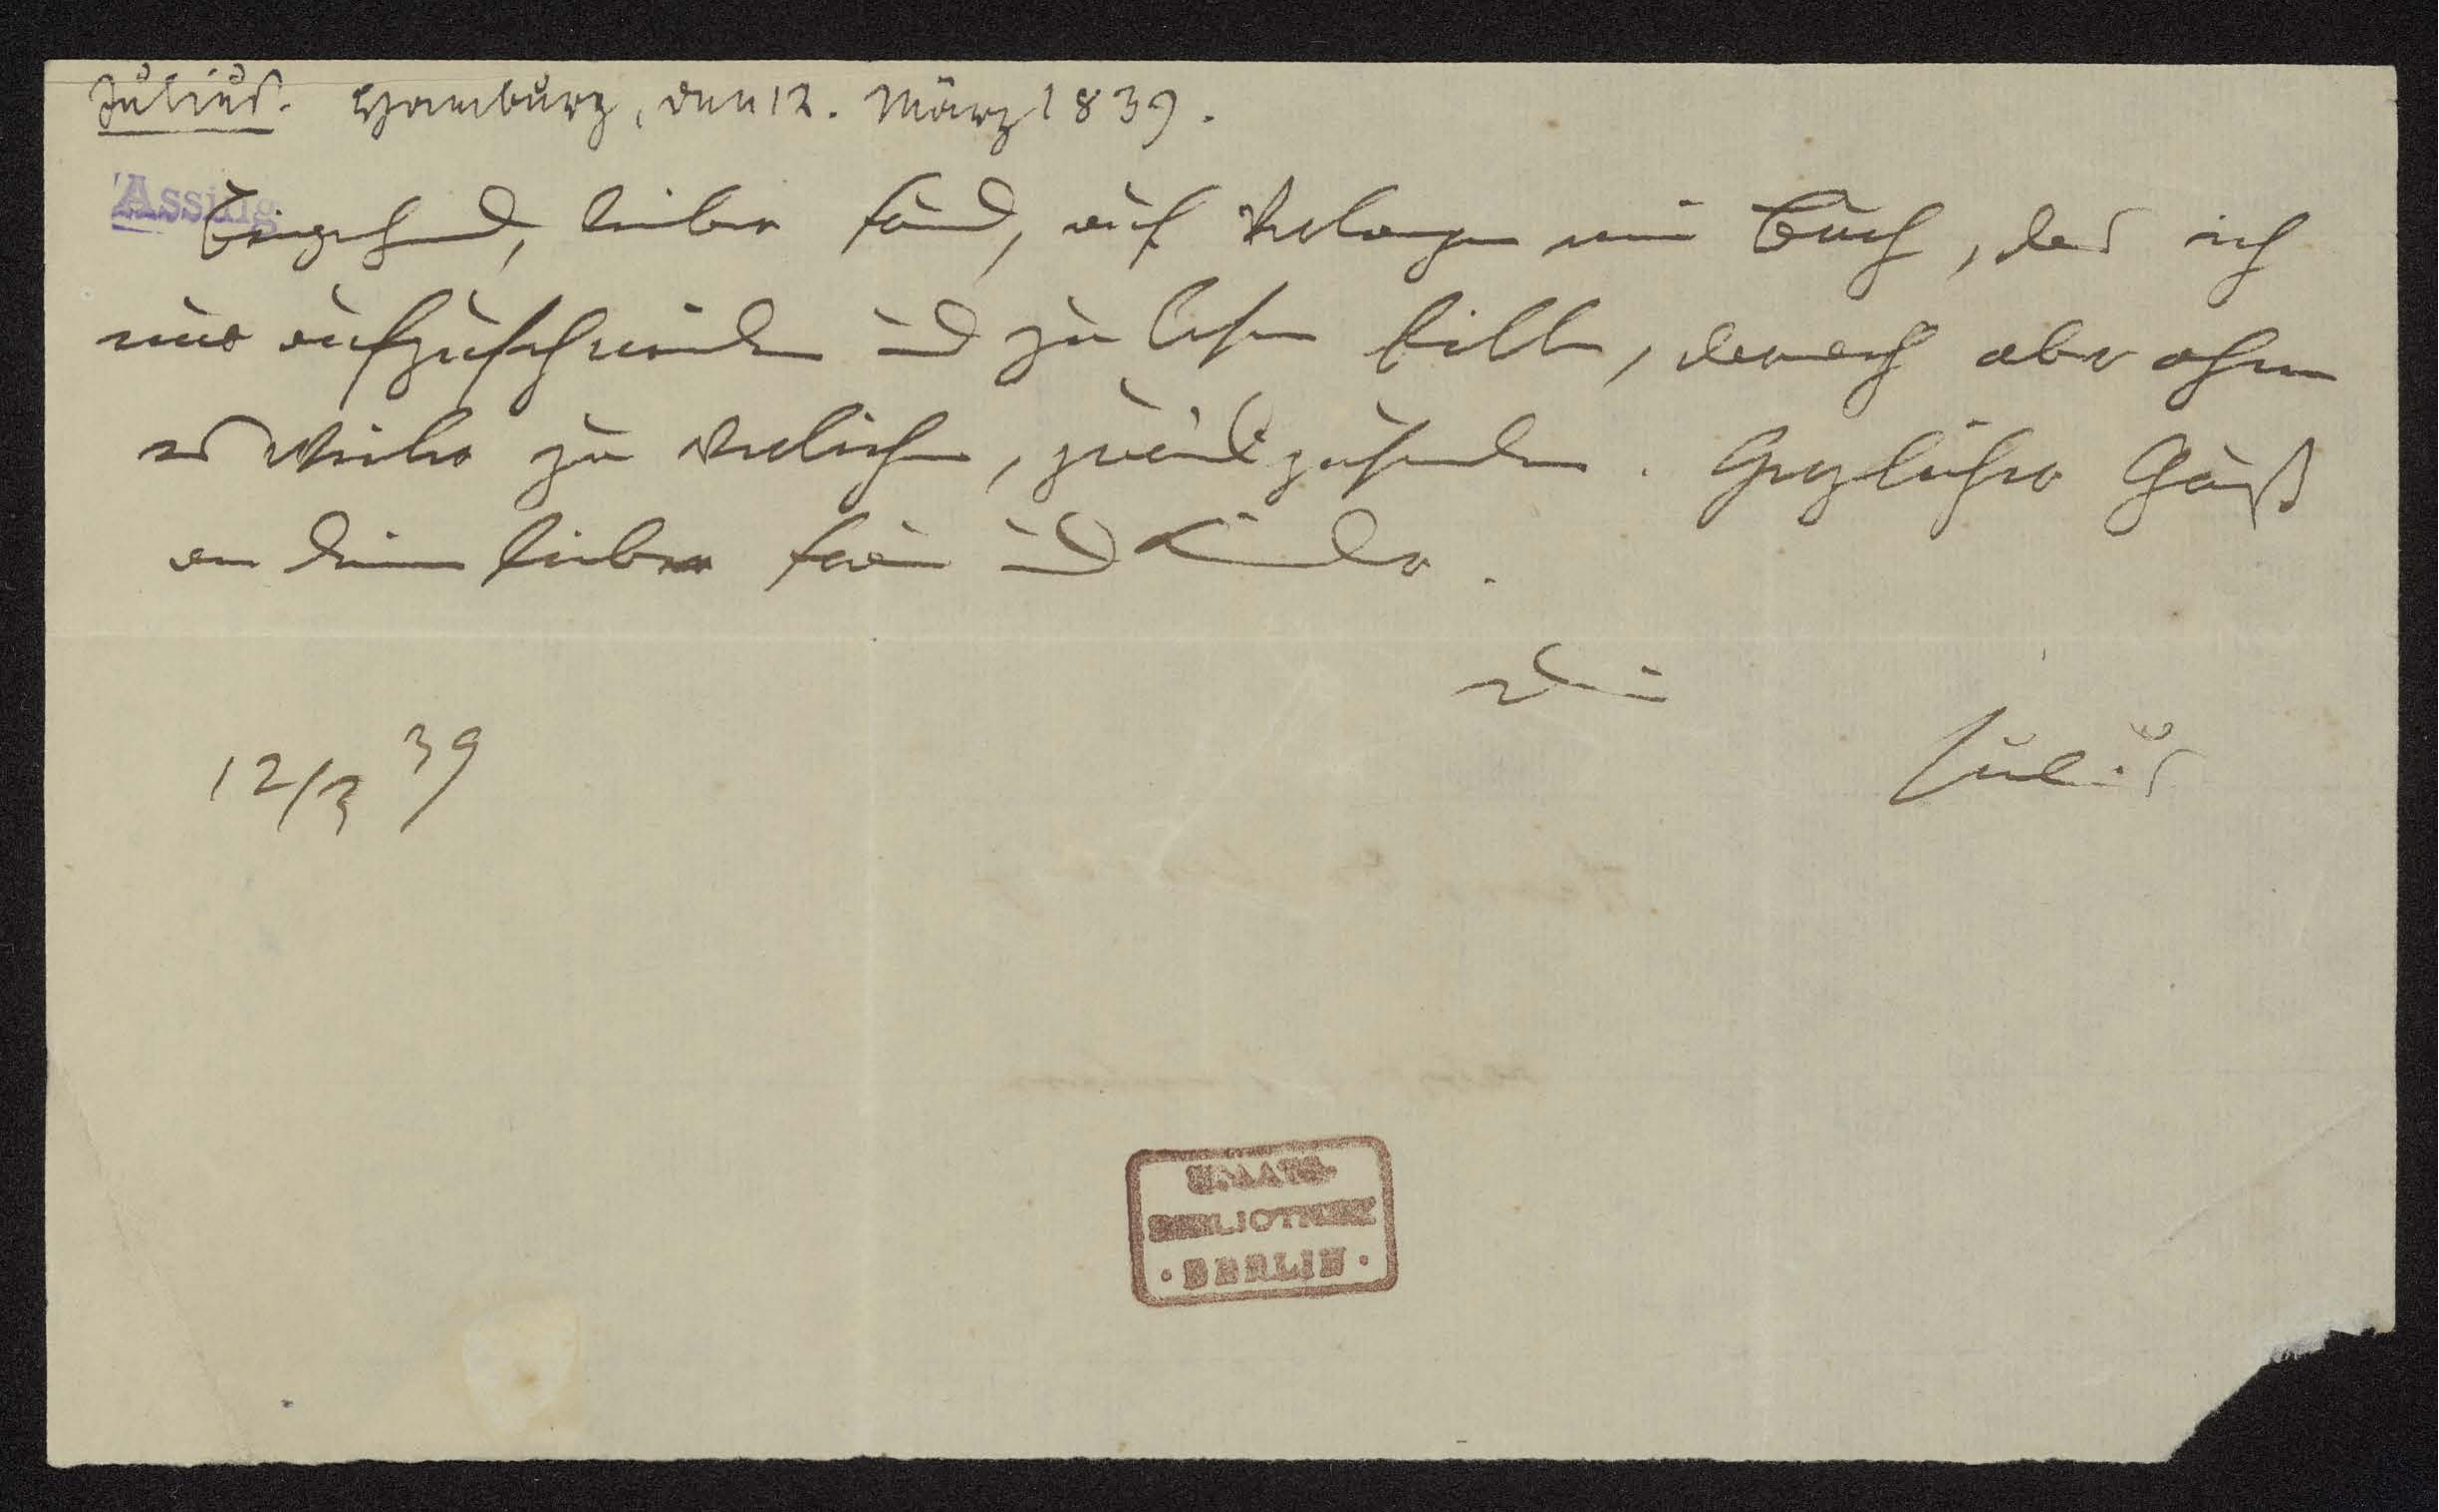 Julius. Hamburg, den 12. März 1839.
Assing
Beigehend, lieber Freund, auf Verlangen mein Buch, das ich
nur aufzuschneiden und zu lesen bitte, danach aber ohne
es weiter zu verleihen, zurückzusenden. Herzlichen Gruß
an deine liebe Frau und Kinder.
Dein
Julius
12/3 39
STAATS-
BIBLIOTHEK
· BERLIN ·